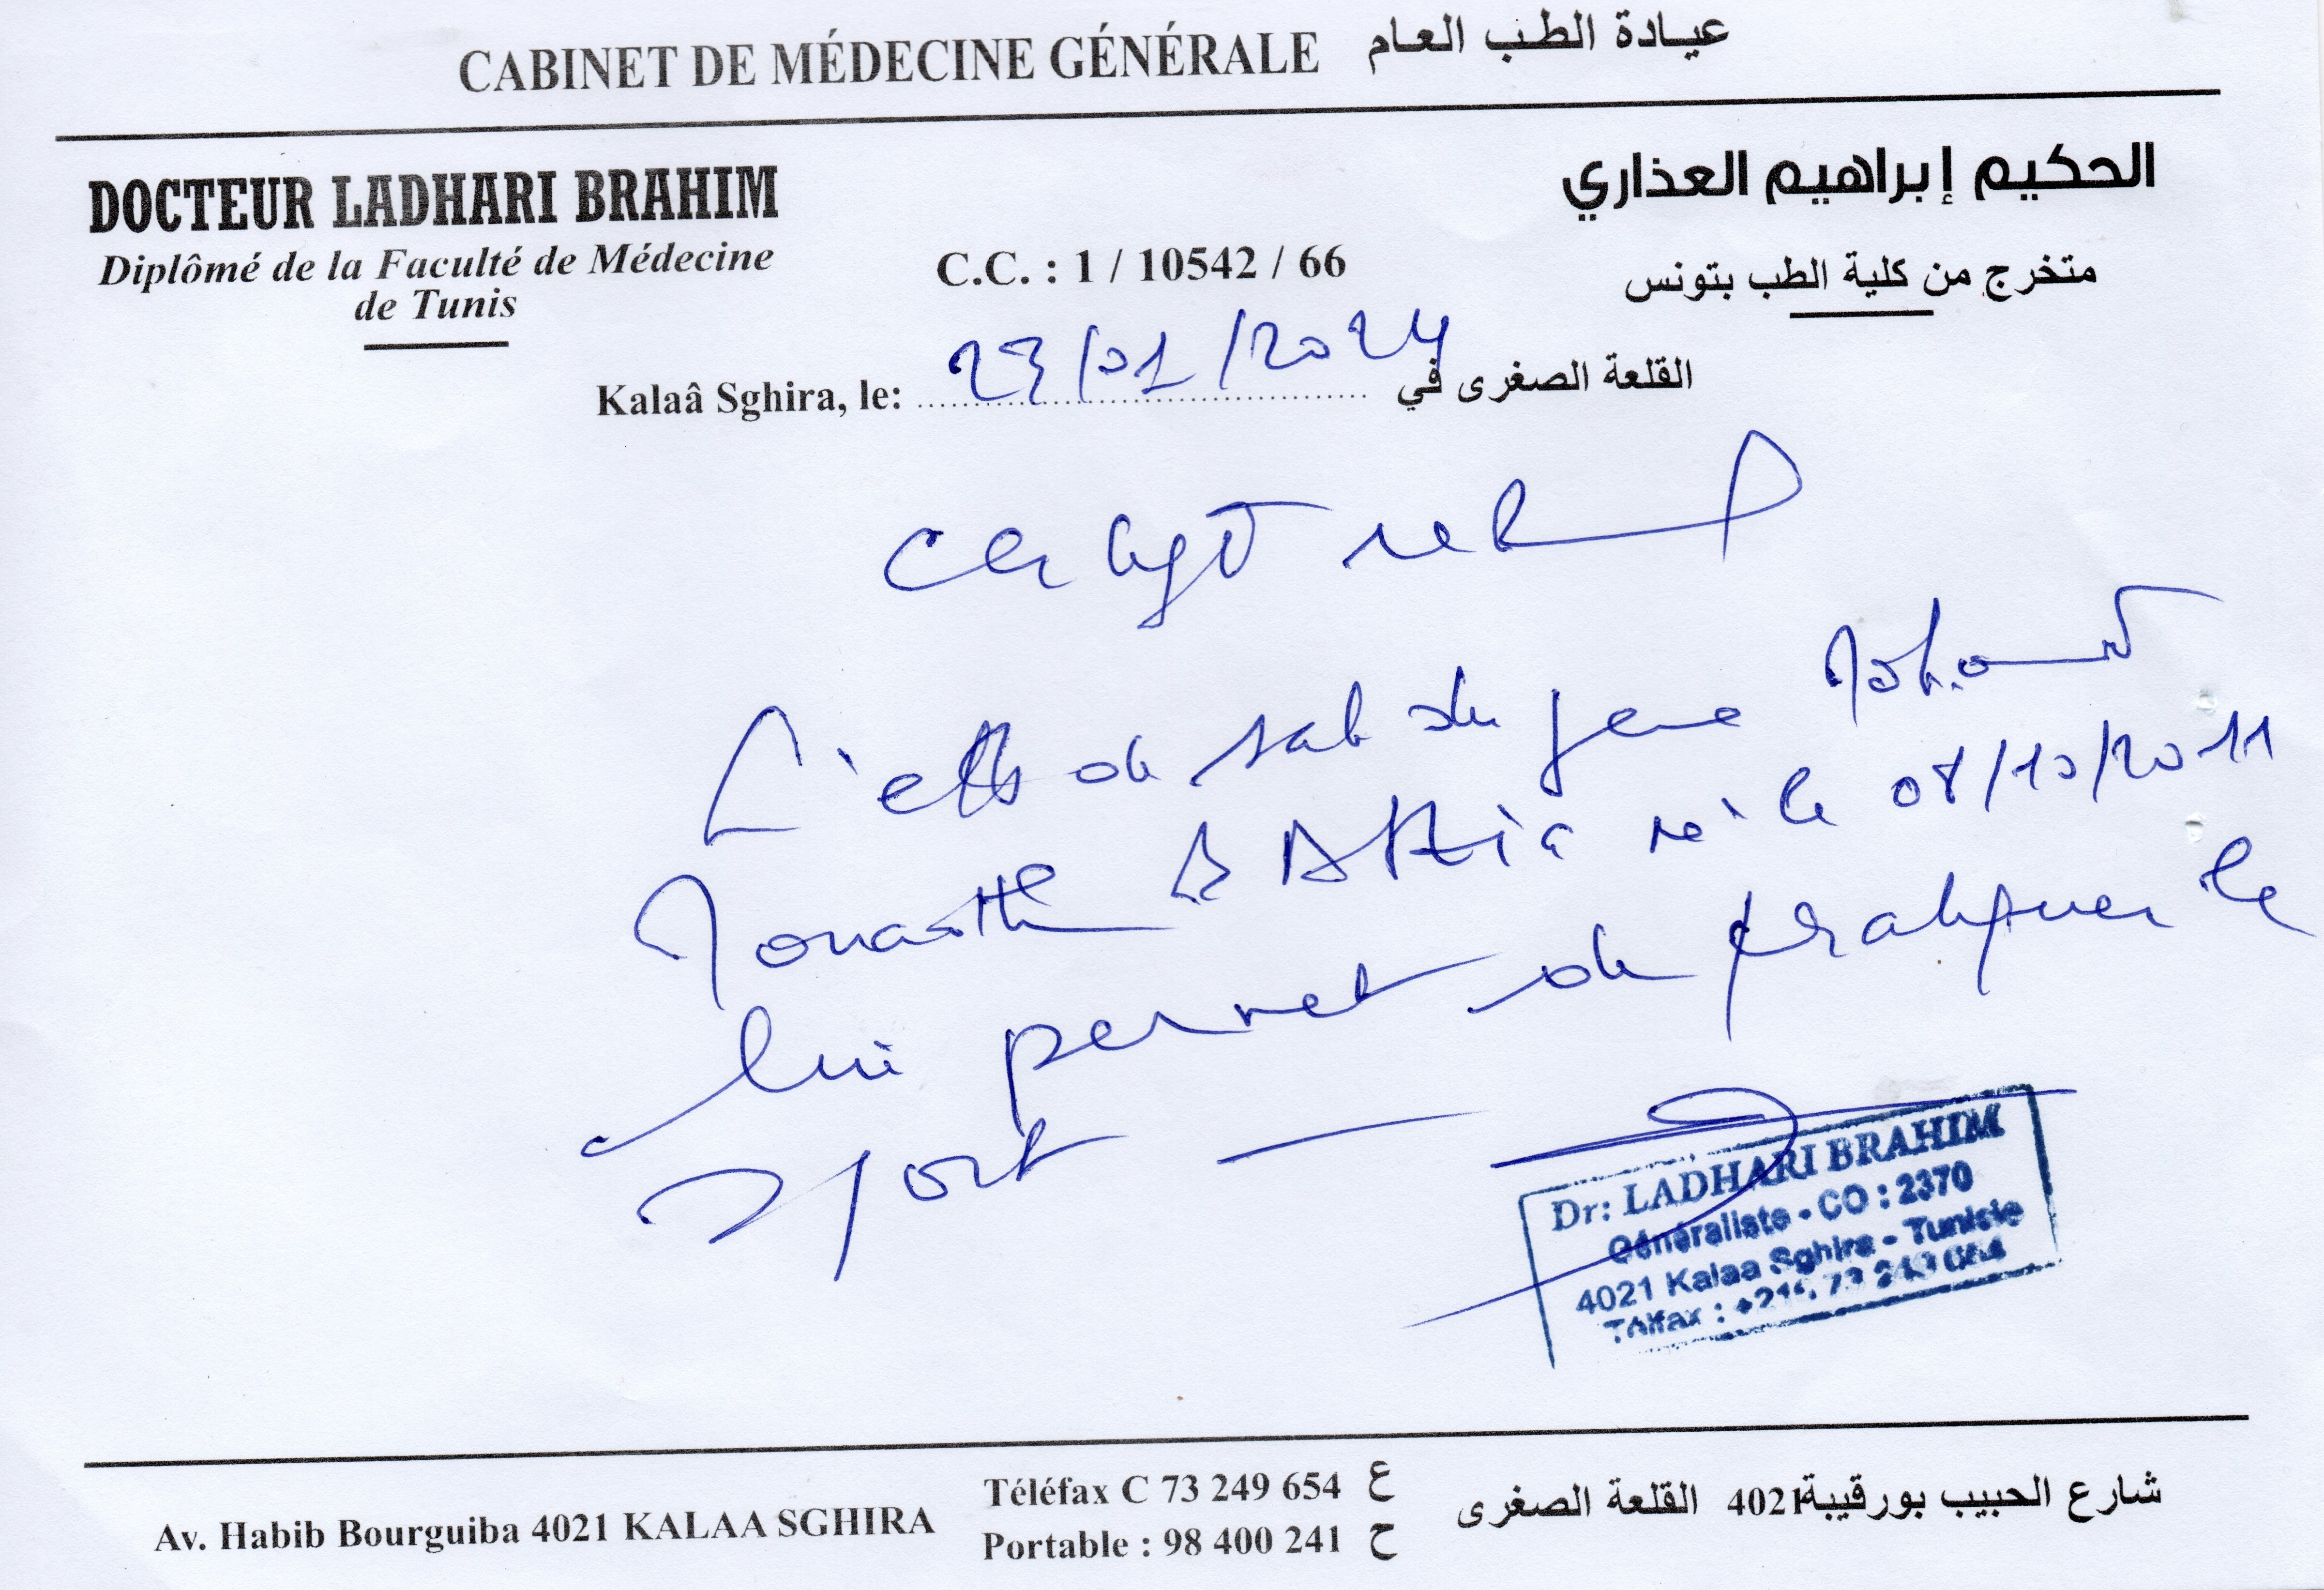 CABINET DE MÉDECINE GÉNÉRALE عيادة الطب العام
DOCTEUR LADHARI BRAHIM
الحكيم إبراهيم العذاري
Diplômé de la Faculté de Médecine
de Tunis
C.C. : 1 / 10542 / 66
متخرج من كلية الطب بتونس
Kalaâ Sghira, le: 23/01/2024 القلعة الصغرى في
L'état de santé du jeune Mohamed
né le 08/10/2011
lui permet de pratiquer le
sport
Dr: LADHARI BRAHIM
Généraliste - CO : 2370
4021 Kalaa Sghira - Tunisie
Télfax :
Av. Habib Bourguiba 4021 KALAA SGHIRA
Téléfax C 73 249 654 ع
Portable : 98 400 241 ح
شارع الحبيب بورقيبة 4021 القلعة الصغرى